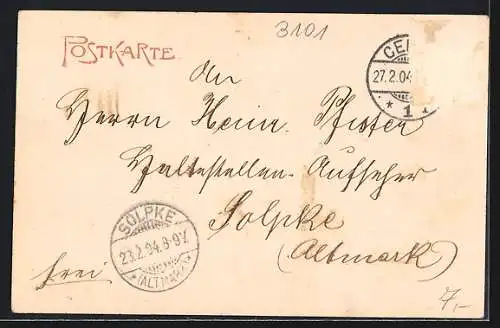 3101
POSTKARTE
CEL
27.2.04
* 1
An
Herrn Heinr. Pfister
Haltestellen-Aufseher
Solpke
(Altmark)
frei
SOLPKE
23.2.04.8-9V.
*(ALTMARK)
7,-